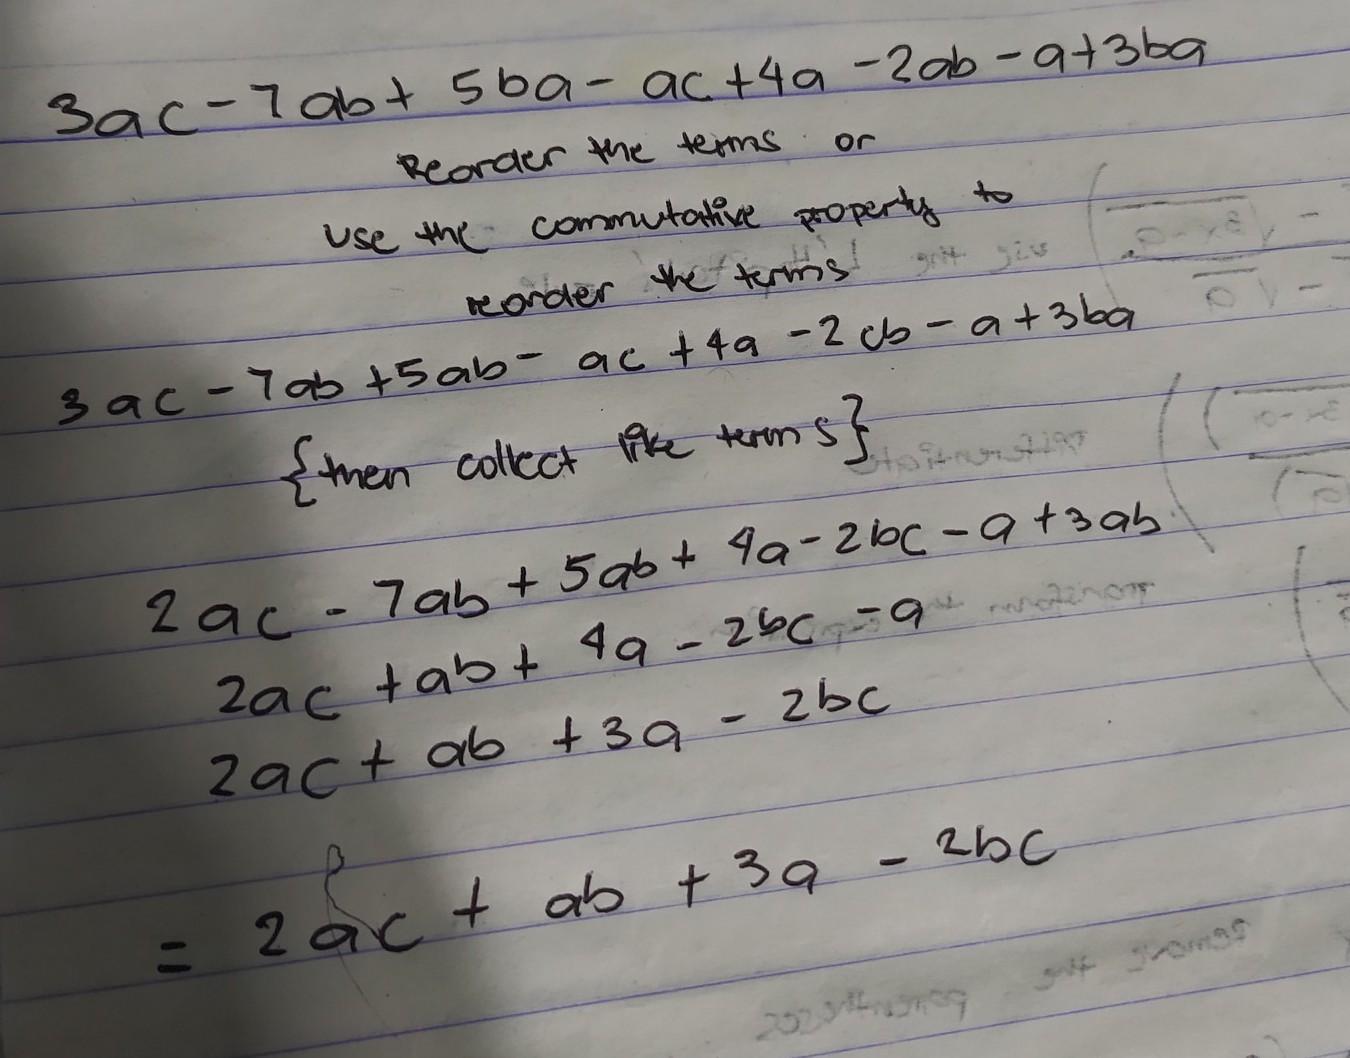 3ac - 7ab + 5ba - ac + 4a - 2ab - a + 3ba
Reorder the terms or
use the commutative property to
reorder the terms
3ac - 7ab + 5ab - ac + 4a - 2cb - a + 3ba
{then collect like terms}
2ac - 7ab + 5ab + 4a - 2bc - a + 3ab
2ac + ab + 4a - 2bc - a
2ac + ab + 3a - 2bc
= 2ac + ab + 3a - 2bc